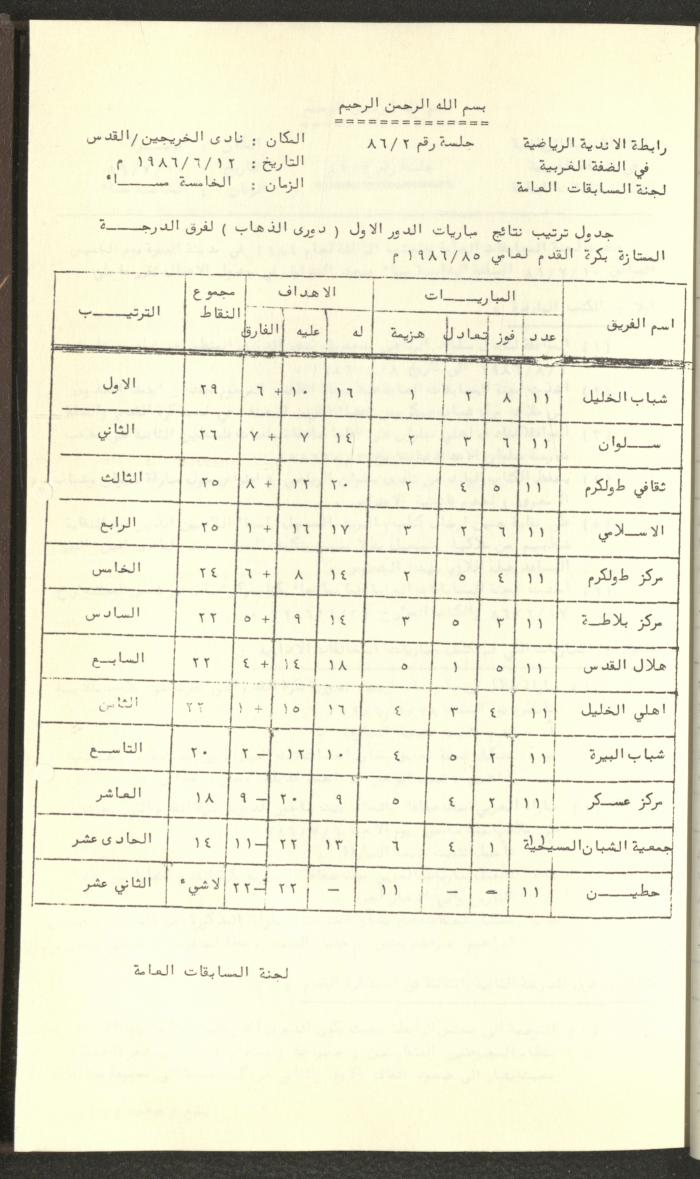 بسم الله الرحمن الرحيم
رابطة الاندية الرياضية جلسة رقم ٨٦/٢ المكان : نادى الخريجين/القدس
في الضفة الغربية التاريخ : ١٩٨٦/٦/١٢ م
لجنة المسابقات العامة الزمان : الخامسة مساء
جدول ترتيب نتائج مباريات الدور الاول ( دورى الذهاب ) لفرق الدرجة
الممتازة بكرة القدم لعامي ١٩٨٦/٨٥ م
اسم الفريق المباريات الاهداف مجموع النقاط الترتيب
عدد فوز تعادل هزيمة له عليه الفارق
شباب الخليل ١١ ٨ ٢ ١ ١٦ ١٠ + ٦ ٢٩ الاول
سلوان ١١ ٦ ٣ ٢ ١٤ ٧ + ٧ ٢٦ الثاني
ثقافي طولكرم ١١ ٥ ٤ ٢ ٢٠ ١٢ + ٨ ٢٥ الثالث
الاسلامي ١١ ٦ ٢ ٣ ١٧ ١٦ + ١ ٢٥ الرابع
مركز طولكرم ١١ ٤ ٥ ٢ ١٤ ٨ + ٦ ٢٤ الخامس
مركز بلاطة ١١ ٣ ٥ ٣ ١٤ ٩ + ٥ ٢٢ السادس
هلال القدس ١١ ٥ ١ ٥ ١٨ ١٤ + ٤ ٢٢ السابع
اهلي الخليل ١١ ٤ ٣ ٤ ١٦ ١٥ + ١ ٢٢ الثامن
شباب البيرة ١١ ٢ ٥ ٤ ١٠ ١٢ – ٢ ٢٠ التاسع
مركز عسكر ١١ ٢ ٤ ٥ ٩ ٢٠ – ٩ ١٨ العاشر
جمعية الشبان المسيحية ١١ ١ ٤ ٦ ١٣ ٢٢ –١١ ١٤ الحادى عشر
حطين ١١ – – ١١ – ٢٢ –٢٢ لاشيء الثاني عشر
لجنة المسابقات العامة